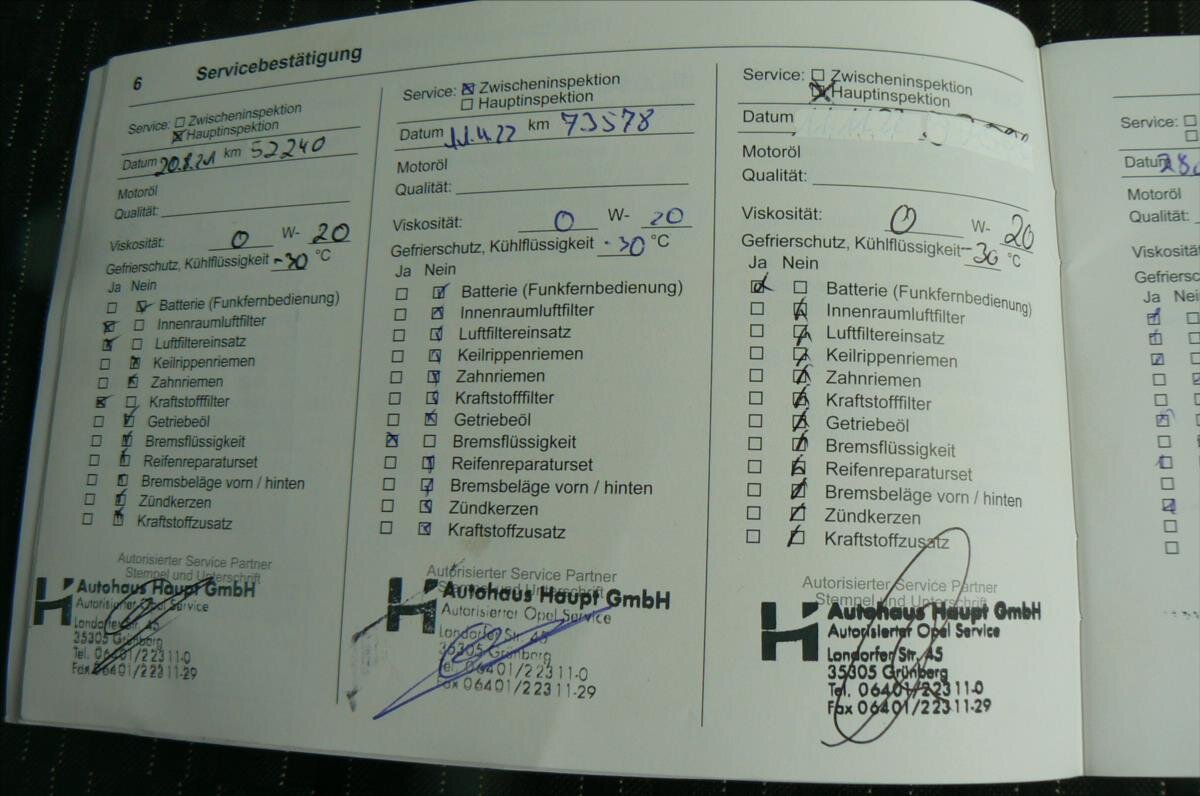 6 Servicebestätigung
Service: Zwischeninspektion
Hauptinspektion
Datum 20.8.21 km 52240
Motoröl
Qualität:
Viskosität: 0 W- 20
Gefrierschutz, Kühlflüssigkeit -30 °C
Ja Nein
Batterie (Funkfernbedienung)
Innenraumluftfilter
Luftfiltereinsatz
Keilrippenriemen
Zahnriemen
Kraftstofffilter
Getriebeöl
Bremsflüssigkeit
Reifenreparaturset
Bremsbeläge vorn / hinten
Zündkerzen
Kraftstoffzusatz
Autorisierter Service Partner
Stempel und Unterschrift
Autohaus Haupt GmbH
Autorisierter Opel Service
Londorfer Str. 45
35305 Grünberg
Tel. 06401/22311-0
Fax 06401/22311-29
Service: Zwischeninspektion
Hauptinspektion
Datum 11.4.22 km 73578
Motoröl
Qualität:
Viskosität: 0 W- 20
Gefrierschutz, Kühlflüssigkeit -30 °C
Ja Nein
Batterie (Funkfernbedienung)
Innenraumluftfilter
Luftfiltereinsatz
Keilrippenriemen
Zahnriemen
Kraftstofffilter
Getriebeöl
Bremsflüssigkeit
Reifenreparaturset
Bremsbeläge vorn / hinten
Zündkerzen
Kraftstoffzusatz
Autorisierter Service Partner
Stempel und Unterschrift
Autohaus Haupt GmbH
Autorisierter Opel Service
Londorfer Str. 45
35305 Grünberg
Tel. 06401/22311-0
Fax 06401/22311-29
Service: Zwischeninspektion
Hauptinspektion
Datum
Motoröl
Qualität:
Viskosität: 0 W- 20
Gefrierschutz, Kühlflüssigkeit -30 °C
Ja Nein
Batterie (Funkfernbedienung)
Innenraumluftfilter
Luftfiltereinsatz
Keilrippenriemen
Zahnriemen
Kraftstofffilter
Getriebeöl
Bremsflüssigkeit
Reifenreparaturset
Bremsbeläge vorn / hinten
Zündkerzen
Kraftstoffzusatz
Autorisierter Service Partner
Stempel und Unterschrift
Autohaus Haupt GmbH
Autorisierter Opel Service
Londorfer Str. 45
35305 Grünberg
Tel. 06401/22311-0
Fax 06401/22311-29
Service:
Datum
Motoröl
Qualität:
Viskosität:
Ja